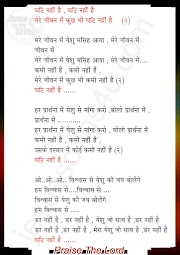 घटि नहीं है , घटि नहीं है
मेरे जीवन में कुछ भी घटि नहीं है (२)
मेरे जीवन में येशु मसिह आया , मेरे जीवन में
जीवन में
मेरे जीवन में येशु मसिह आया , मेरे जीवन में....
कमी नहीं है , कमी नहीं है ,
मेरे जीवन में कुछ भी घटि नहीं है (२)
घटि नहीं है ......
हर प्रार्थना में येशु से मांगा करो , बोलो प्रार्थना में ,
प्रार्थना में ..........
हर प्रार्थना में येशु से मांगा करो , बोलो प्रार्थना में
कमी नहीं है , कमी नहीं है ,
उसके दरबार में कोई कमी नहीं है (२)
घटि नहीं है ......
ओ..ओ..ओ.. विश्वास से येशु की जय बोलेंगे
हम विश्वास से....विश्वास से ...
विश्वास से येशु की जय बोलेंगे
हम विश्वास से ....
डर नहीं है , डर नहीं है , येशु जो साथ है ,डर नहीं है
डर नहीं है , डर नहीं है , मेरा येशु जो साथ है ,डर नहीं है
घटि नहीं है ......
Praise The Lord